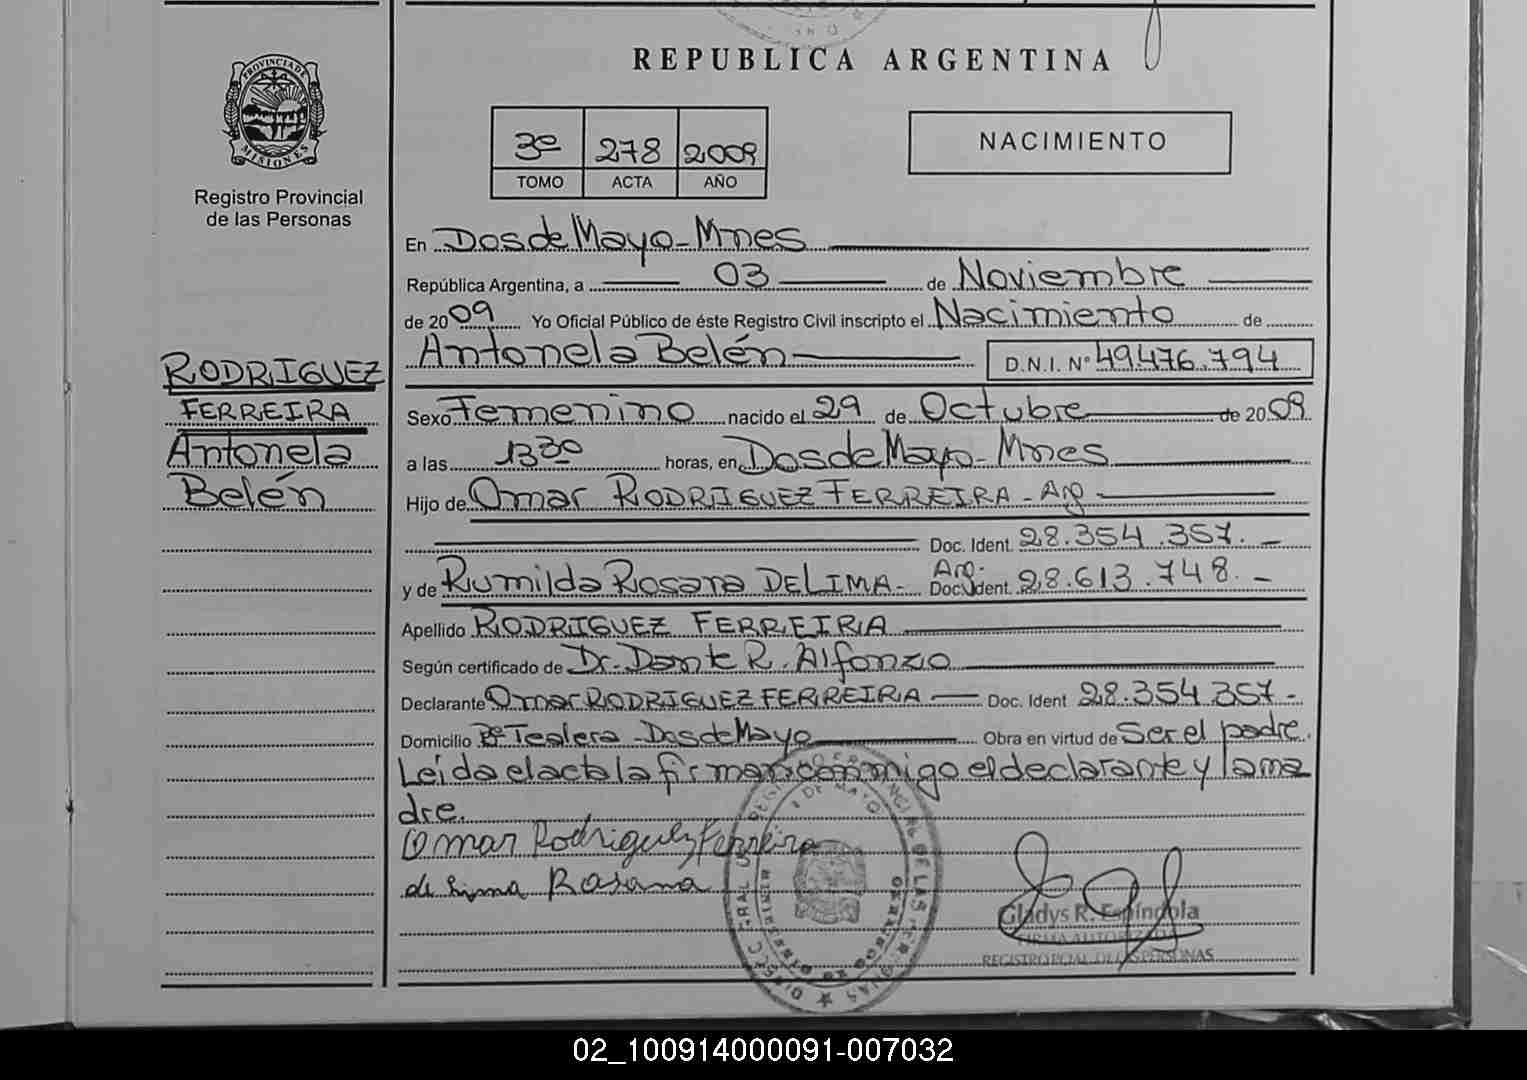 REPUBLICA ARGENTINA
PROVINCIA DE
MISIONES
Registro Provincial
de las Personas
3º 278 2009
TOMO ACTA AÑO
NACIMIENTO
En Dos de Mayo - Mnes
República Argentina, a 03 de Noviembre
de 2009 Yo Oficial Público de éste Registro Civil inscripto el Nacimiento de
Antonela Belén D.N.I. Nº 49.476.794
RODRIGUEZ
FERREIRA
Antonela
Belén
Sexo Femenino nacido el 29 de Octubre de 2009
a las 13 30 horas, en Dos de Mayo - Mnes
Hijo de Omar RODRIGUEZ FERREIRA - Arg -
Doc. Ident. 28.354.357. -
y de Rumilda Rosana DE LIMA - Arg. Doc. Ident. 28.613.748. -
Apellido RODRIGUEZ FERREIRA
Según certificado de Dr. Dante R. Alfonzo
Declarante Omar RODRIGUEZ FERREIRA Doc. Ident 28.354.357 -
Domicilio Bº Tealera - Dos de Mayo Obra en virtud de Ser el padre.
Leida el acta la firman conmigo el declarante y la ma
dre.
Omar Rodriguez Ferreira
de Lima Rosana
Gladys R. Espíndola
FIRMA AUTORIZADA
REGISTRO PCIAL. DE LAS PERSONAS
02_100914000091-007032